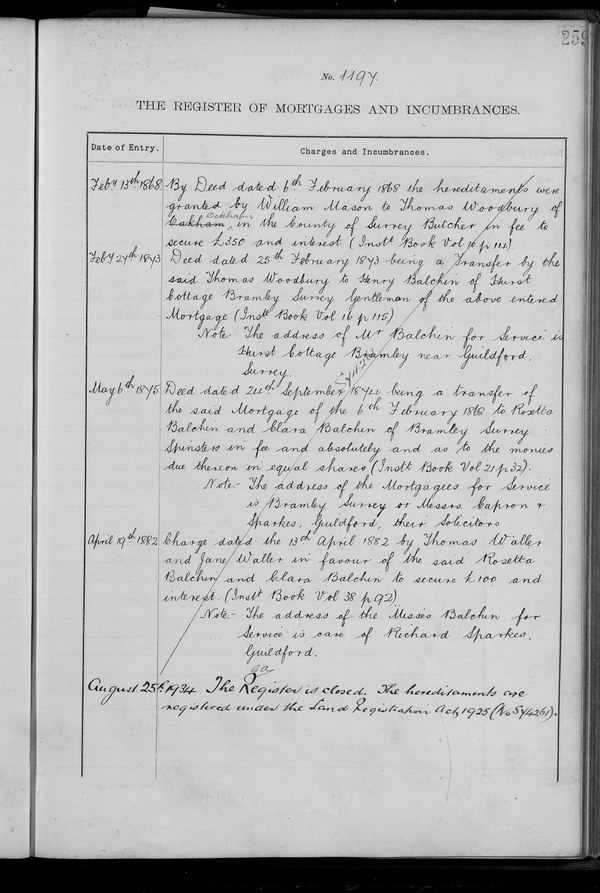 259
No. 1197.
THE REGISTER OF MORTGAGES AND INCUMBRANCES.
Date of Entry.
Charges and Incumbrances.
Feby 13th 1868 By Deed dated 6th February 1868 the hereditaments were
granted by William Mason to Thomas Woodbury of
Oakham Ockham in the County of Surrey Butcher in fee to
secure £350 and interest (Instt Book Vol 10 p 114).
Feby 27th 1873 Deed dated 25th February 1873 being a Transfer by the
said Thomas Woodbury to Henry Balchin of Hurst
Cottage Bramley Surrey Gentleman of the above entered
Mortgage (Instt Book Vol 16 p 115)
Note. The address of Mr Balchin for Service is
Hurst Cottage Bramley near Guildford.
Surrey.
May 6th 1875 Deed dated 24th September 1874 being a transfer of
the said Mortgage of the 6th February 1868 to Rosetta
Balchin and Clara Balchin of Bramley Surrey
Spinsters in fee and absolutely and as to the monies
due thereon in equal shares (Instt Book Vol 21 p 32).
Note:- The address of the Mortgagees for Service
is Bramley Surrey or Messrs. Capron &
Sparkes, Guildford, their Solicitors
April 19th 1882 Charge dated the 13th April 1882 by Thomas Waller
and Jane Waller in favour of the said Rosetta
Balchin and Clara Balchin to secure £100 and
interest. (Instt Book Vol 38 p 92)
Note:- The address of the Misses Balchin for
Service is care of Richard Sparkes.
Guildford.
August 25th 1934 The Register is closed. The hereditaments are
registered under the Land Registration Act, 1925 (No SY4261).